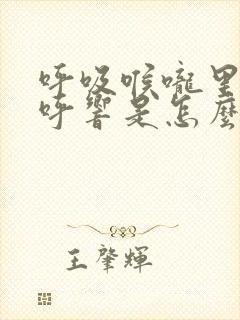 呼吸喉嚨里
呼響是怎麼
王肇輝